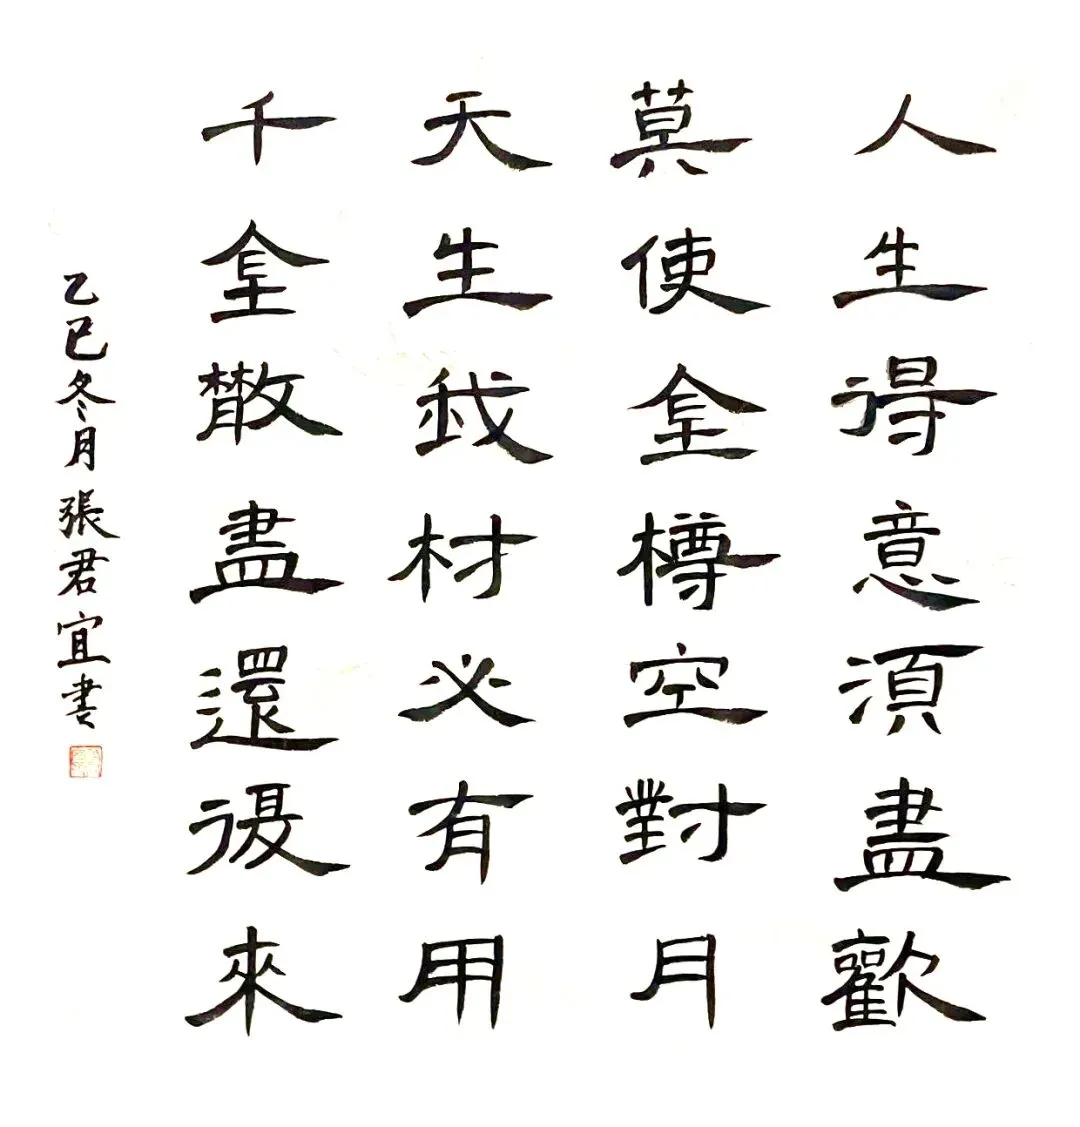 人生得意須盡歡
莫使金樽空對月
天生我材必有用
千金散盡還復來
乙巳冬月張君宜書